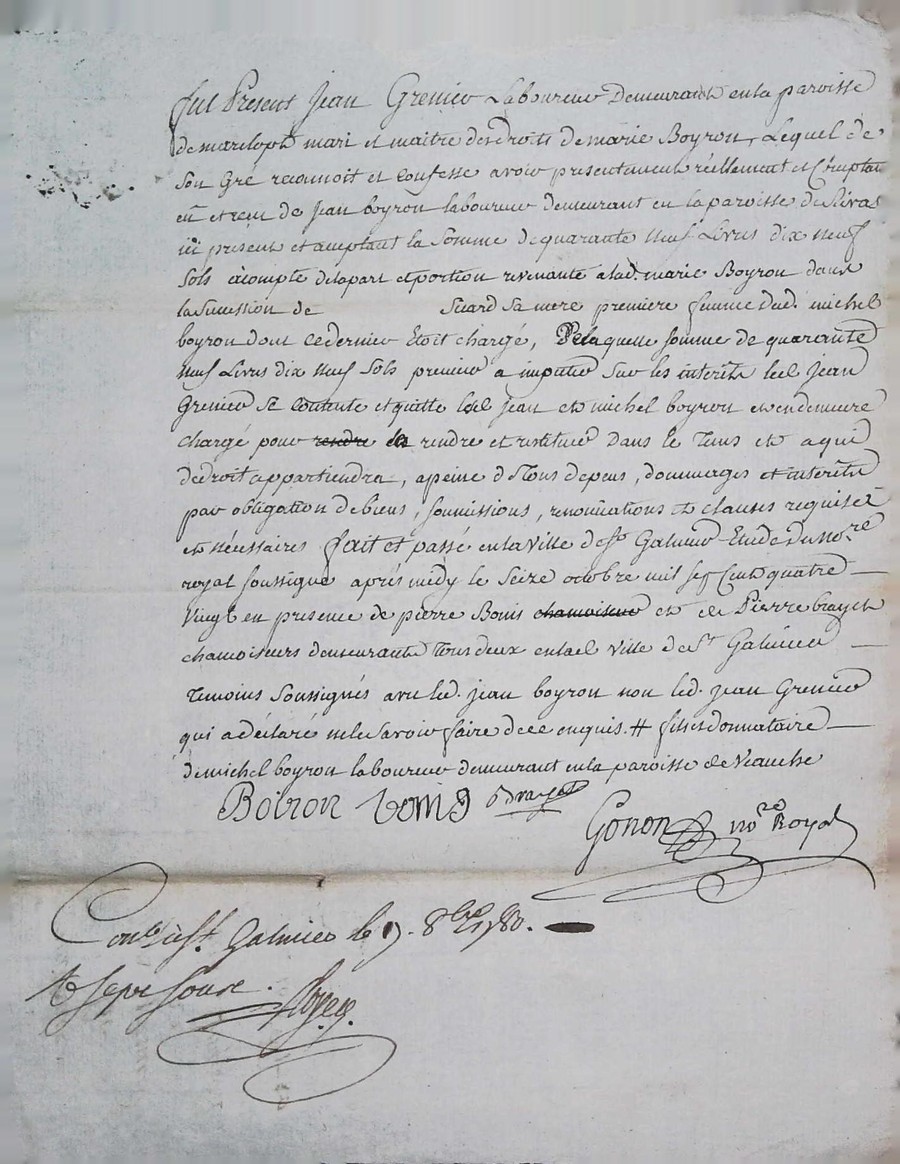 fut Present Jean Grenier Laboureur Demeurant en la paroisse
de mari et maitre des droits de marie Boyron, Lequel de
son Gré reconnoit et confesse avoir presentement réellement et Comptan
eü et reçu de Jean boyron laboureur demeurant en la paroisse de Rivas
ici present et acceptant la somme de quarante neuf Livres dix neuf
sols àcompte de la part et portion revenante a lad. marie Boyron dans
la succession de Sicard sa mere première femme dud. michel
boyron dont ce dernier Etoit chargé, De laquelle somme de quarante
neuf Livres dix neuf sols premier a imputer sur les interêts led. Jean
Grenier se contente et quitte led. jean et michel boyron et en demeure
chargé pour rendre la rendre et restituer dans le Tems et a qui
de droit appartiendra, a peine de Tous depens, dommages et interêts
par obligation de biens, soumissions, renonciations et clauses requises
et nécessaires fait et passé en la Ville de St Galmier Etude du no.re
royal soussigné après midy le seize octobre mil sept Cent quatre
Vingt en presence de pierre Bonis chamoiseur et de Pierre brayet
chamoiseurs demeurants Tous deux en lad. Ville de St Galmier
Temoins soussignés avec led. jean boyron non led. jean Grenier
qui a déclaré ne le savoir faire de ce enquis. # fils et donnataire
de michel boyron laboureur demeurant en la paroisse de Veauche
Boiron bonis brayet
Gonon no.re Royal
Con.lé à St. Galmier le 19. 8bre 1780.